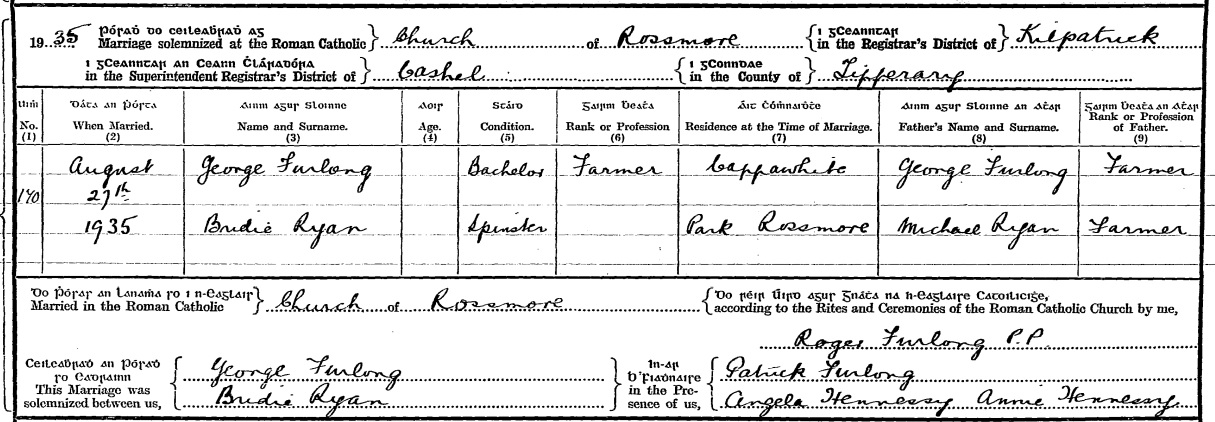 Pórad do ceileabrad ag
1935 Marriage solemnized at the Roman Catholic } Church of Rossmore { i gCeanntar
in the Registrar's District of } Kilpatrick
i gCeanntar an Ceann Cláraðóra
in the Superintendent Registrar's District of } Cashel { i gConndae
in the County of } Tipperary
Uimh No. (1)
Dáta an Pórta When Married. (2)
Ainm agus Sloinne Name and Surname. (3)
Aois Age. (4)
Stáid Condition. (5)
Gairm Beata Rank or Profession (6)
Áit Cómnaidte Residence at the Time of Marriage. (7)
Ainm agus Sloinne an Atar Father's Name and Surname. (8)
Gairm Beata an Atar Rank or Profession of Father. (9)
170 August 27th 1935
George Furlong Bachelor Farmer Cappawhite George Furlong Farmer
Bridie Ryan Spinster Park Rossmore Michael Ryan Farmer
Do Pórad an Lanama so i n-Eaglais
Married in the Roman Catholic } Church of Rossmore { Do réir Úird agus Gnáta na h-Eaglaise Catoilicige,
according to the Rites and Ceremonies of the Roman Catholic Church by me,
Roger Furlong P.P.
Ceileabrad an Pórad
so Eadrainn
This Marriage was
solemnized between us,
George Furlong
Bridie Ryan
In-ar
b'Fiadnaire
in the Pre-
sence of us,
Patrick Furlong
Angela Hennessy Annie Hennessy